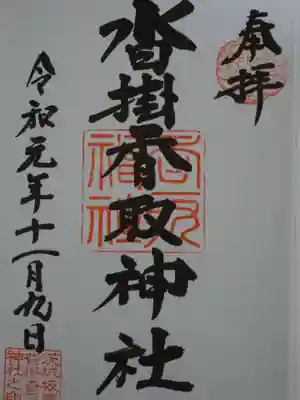 奉拝
沓掛香取神社
令和元年十一月九日